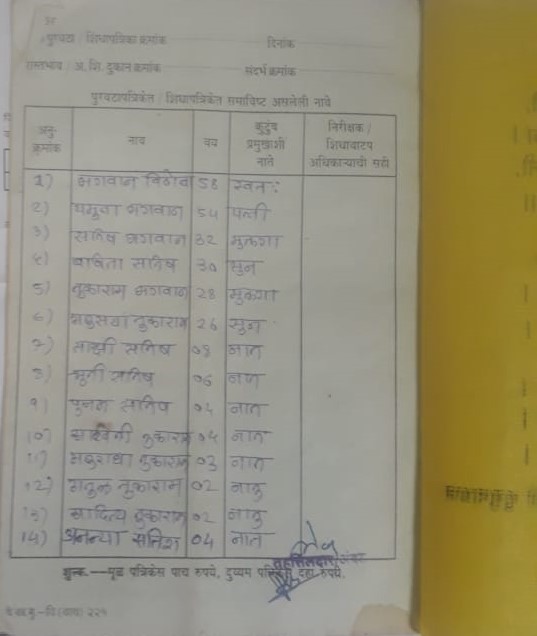 पुरवठा / शिधापत्रिका क्रमांक दिनांक
रास्तभाव / अ. शि. दुकान क्रमांक संदर्भ क्रमांक
पुरवठापत्रिकेत / शिधापत्रिकेत समाविष्ट असलेली नावे
अनु-क्रमांक नाव वय कुटुंब प्रमुखाशी नाते निरीक्षक / शिधावाटप अधिकाऱ्याची सही
1) भगवान विठोब 58 स्वतः
2) यमुना भगवान 54 पत्नी
3) सतिष भगवान 32 मुलगा
4) बबिता सतिष 30 सुन
5) तुकाराम भगवान 28 मुलगा
6) तुकाराम 26 सुन
7) साक्षी सतिष 08 नात
8) सतिष 06 नात
9) पुनम सतिष 04 नात
10) तुकाराम 04 नात
11) अनुराधा तुकाराम 03 नात
12) तुकाराम 02 नातु
13) आदित्य तुकाराम 02 नातु
14) अनन्या सतिश 04 नात
तहसिलदार
शुल्क.—मूळ पत्रिकेस पाच रुपये, दुय्यम पत्रिकेस दहा रुपये.